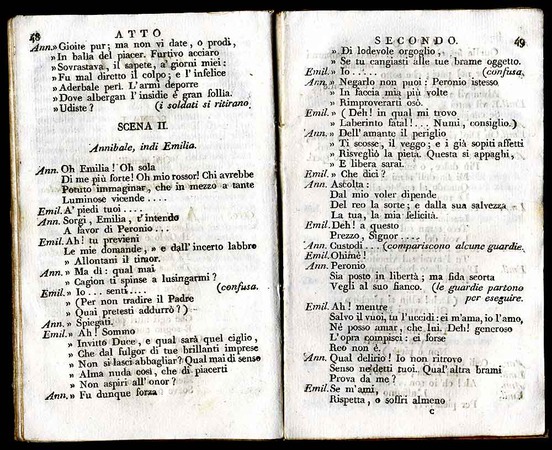 48
ATTO
Ann.» Gioite pur; ma non vi date, o prodi,
» In balìa del piacer. Furtivo acciaro
» Sovrastava, il sapete, a' giorni miei:
» Fu mal diretto il colpo; e l' infelice
» Aderbale perì. L'armi deporre
» Dove albergan l'insidie è gran follia.
» Udiste? (i soldati si ritirano,
SCENA II.
Annibale, indi Emilia.
Ann. Oh Emilia! Oh sola
Di me più forte! Oh mio rossor! Chi avrebbe
Potuto immaginar, che in mezzo a tante
Luminose vicende ....
Emil. A' piedi tuoi ....
Ann. Sorgi, Emilia, t'intendo
A favor di Peronio ...
Emil. Ah! tu previeni
Le mie domande, » e dall' incerto labbro
» Allontani il timor.
Ann.» Ma di: qual mai
» Cagion ti spinse a lusingarmi?
Emil.» Io ... senti .... (confusa.
» (Per non tradire il Padre
» Quai pretesti addurrò?)
Ann.» Spiegati.
Emil.» Ah! Sommo
» Invitto Duce, e qual sarà quel ciglio,
» Che dal fulgor di tue brillanti imprese
» Non si lasci abbagliar? Qual mai di senso
» Alma nuda così, che di piacerti
» Non aspiri all' onor?
Ann.» Fu dunque forza
SECONDO.
49
» Di lodevole orgoglio,
» Se tu cangiasti alle tue brame oggetto.
Emil.» Io ..... (confusa.
Ann.» Negarlo non puoi: Peronio istesso
» In faccia mia più volte
» Rimproverarti osò.
Emil.» (Deh! in qual mi trovo
» Laberinto fatal!... Numi, consiglio.)
Ann.» Dell'amante il periglio
» Ti scosse, il veggo; e i già sopiti affetti
» Risvegliò la pietà. Questa si appaghi,
» E libera sarai.
Emil.» Che dici?
Ann. Ascolta:
Dal mio voler dipende
Del reo la sorte; e dalla sua salvezza
La tua, la mia felicità.
Emil. Deh! a questo
Prezzo, Signor ....
Ann. Custodi ... (compariscono alcune guardie.
Emil. Ohimè!
Ann. Peronio
Sia posto in libertà; ma fida scorta
Vegli al suo fianco. (le guardie partono
per eseguire.
Emil. Ah! mentre
Salvo il vuoi, tu l'uccidi: ei m'ama, io l'amo,
Nè posso amar, che lui. Deh! generoso
L'opra compisci: ei forse
Reo non è.
Ann. Qual delirio! Io non ritrovo
Senso ne'detti tuoi. Qual'altra brami
Prova da me?
Emil. Se m'ami,
Rispetta, o soffri almeno
c